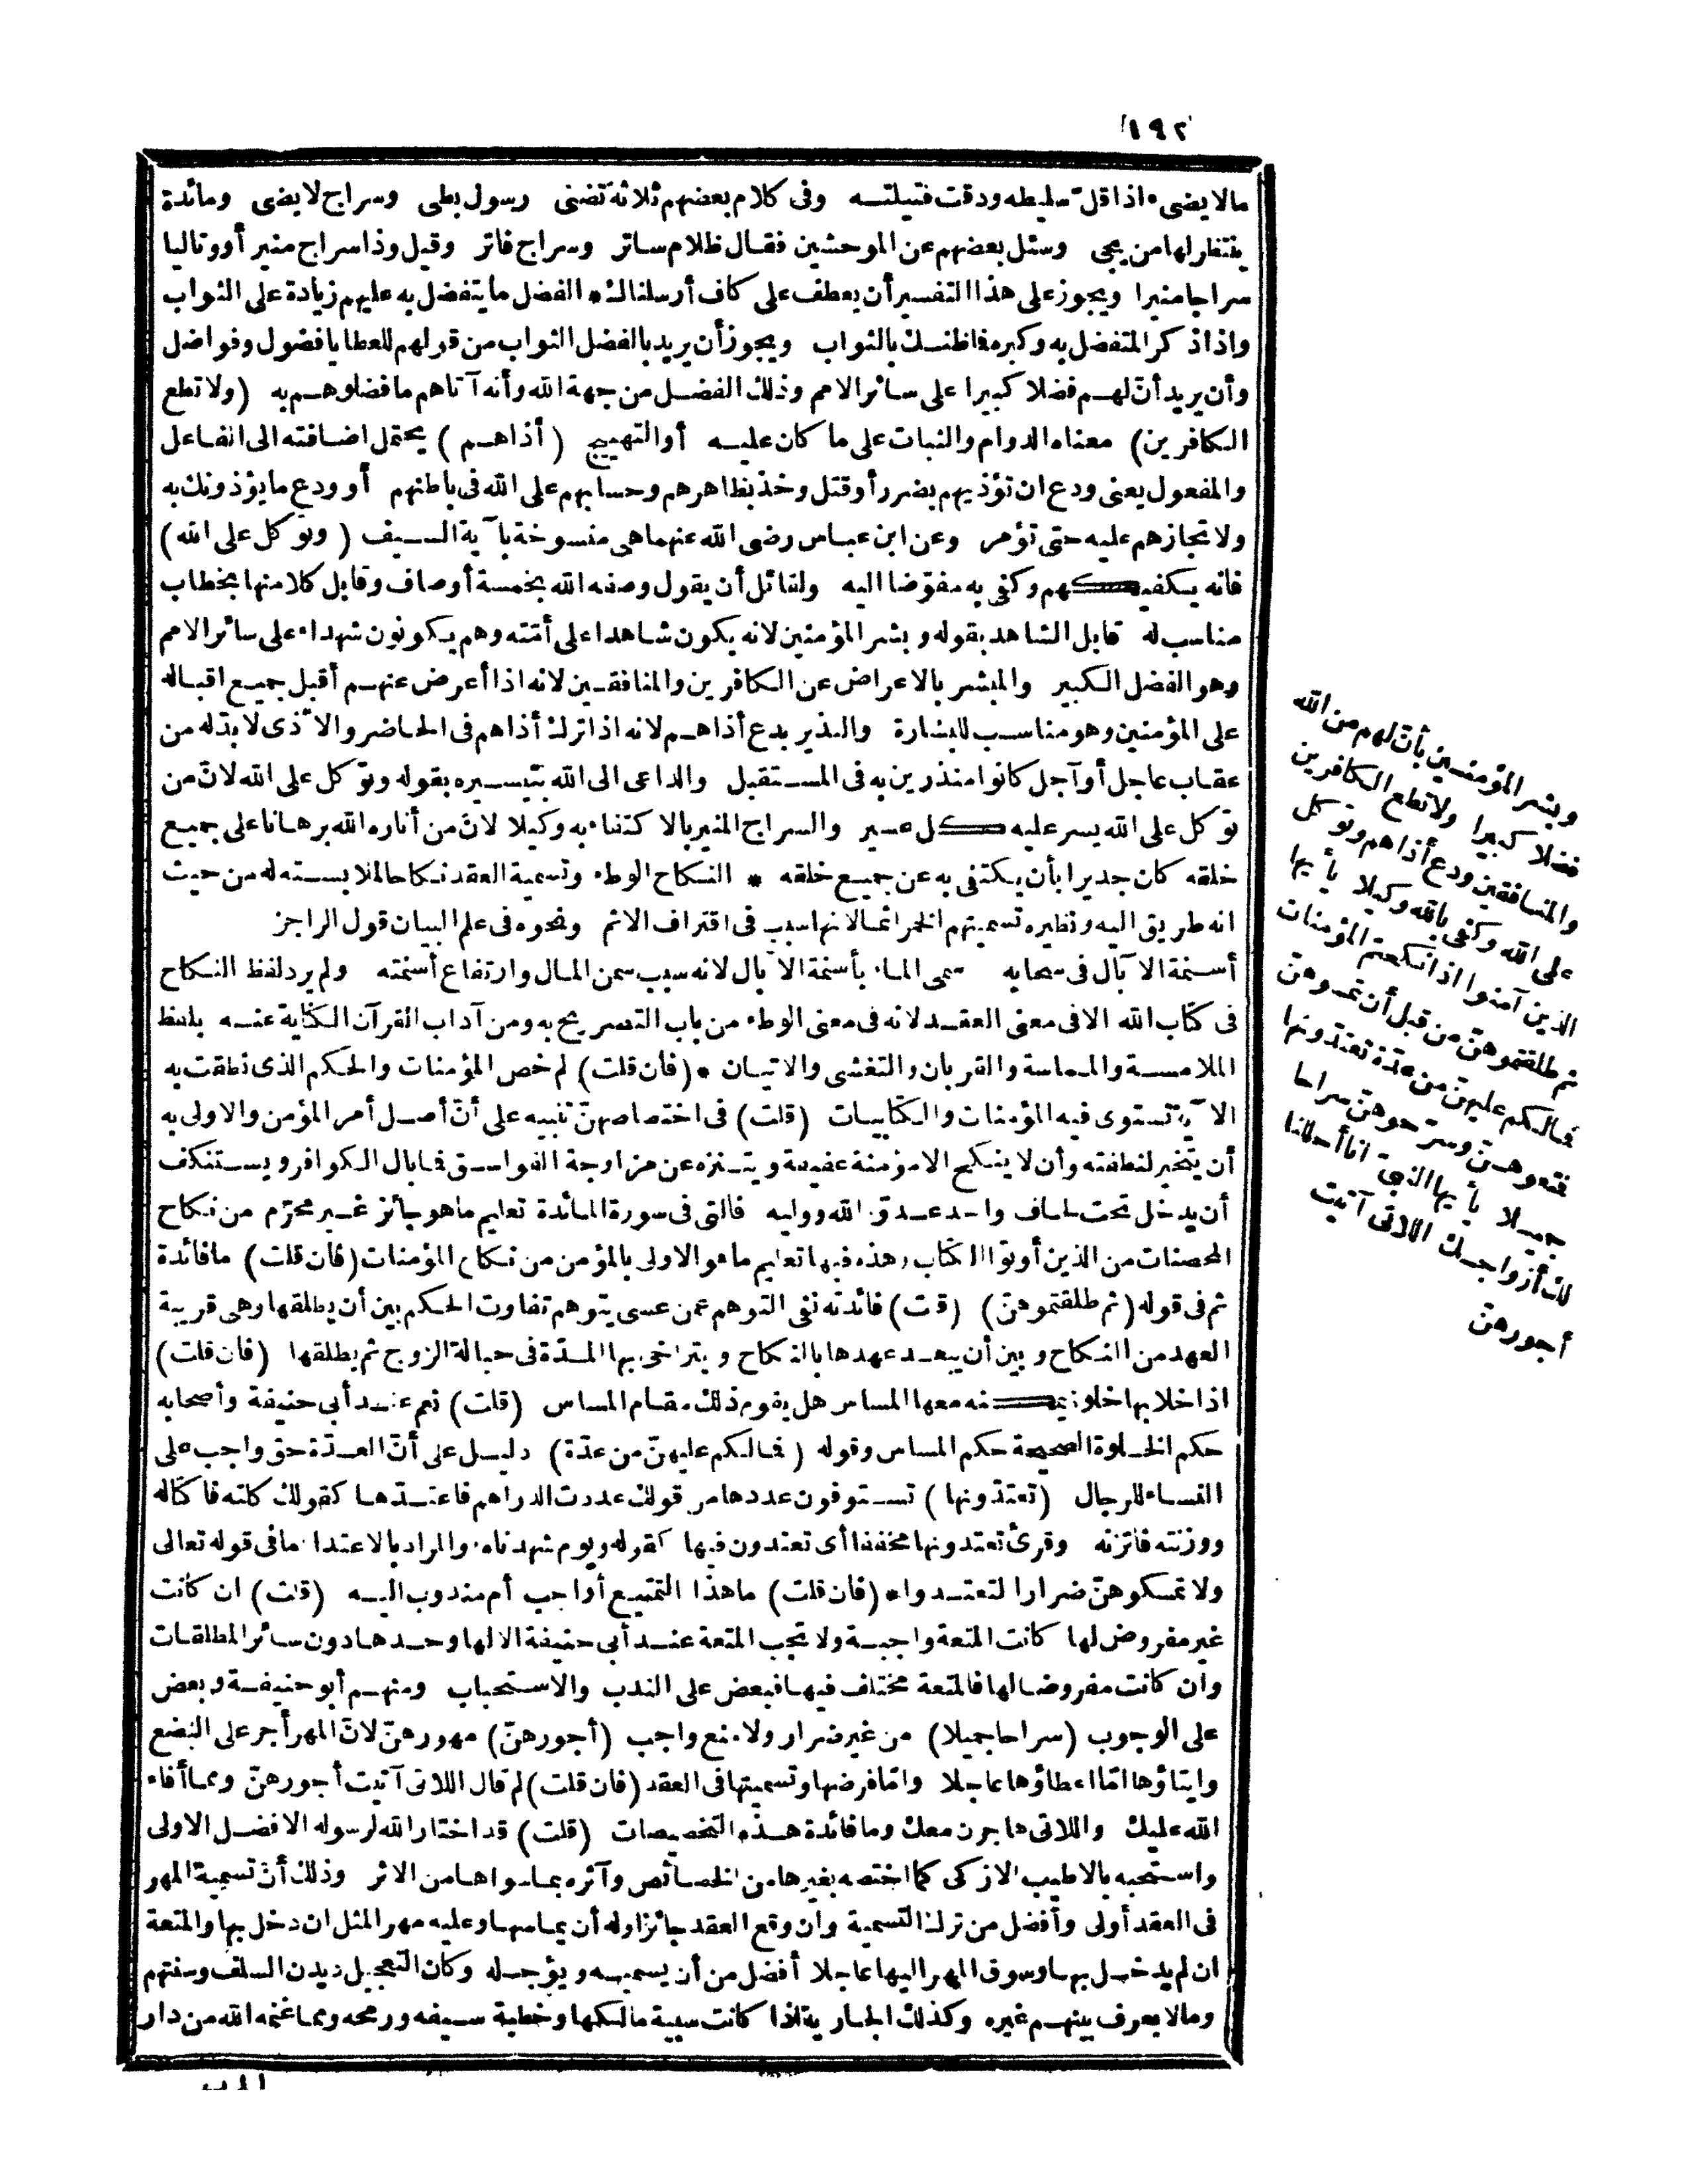 ١٩٢
مالا يضىء اذا قل سليطه ودقت فتيلته وفى كلام بعضهم ثلاثة تضنى رسول بطى وسراج لا يضى ومائدة
ينتظر لها من يجى وسئل بعضهم عن الموحشين فقال ظلام ساتر وسراج فاتر وقيل وذا سراج منير أو وتاليا
سراجا منيرا ويجوز على هذا التفسير أن يعطف على كاف أرسلناك * الفضل ما يتفضل به عليهم زيادة على الثواب
واذا ذكر المتفضل به وكبره فما ظنك بالثواب ويجوز أن يريد بالفضل الثواب من قولهم للعطايا فضول وفواضل
وأن يريد أنّ لهم فضلا كبيرا على سائر الامم وذلك الفضل من جهة الله وأنه آتاهم ما فضلوهم به (ولا تطع
الكافرين) معناه الدوام والثبات على ما كان عليه أو التهييج (أذاهم) يحتمل اضافته الى الفاعل
والمفعول يعنى ودع ان تؤذيهم بضرر أو قتل وخذ بظاهرهم وحسابهم على الله فى باطنهم أو ودع ما يؤذونك به
ولا تجازهم عليه حتى تؤمر وعن ابن عباس رضى الله عنهما هى منسوخة بآية السيف (وتوكل على الله)
فانه يكفيكهم وكفى به مفوّضا اليه ولقائل أن يقول وصفه الله بخمسة أوصاف وقابل كلا منها بخطاب
مناسب له قابل الشاهد بقوله وبشر المؤمنين لانه يكون شاهدا على أمّته وهم يكونون شهداء على سائر الامم
وهو الفضل الكبير والمبشر بالاعراض عن الكافرين والمنافقين لانه اذا أعرض عنهم أقبل جميع اقباله
على المؤمنين وهو مناسب للبشارة والنذير بدع أذاهم لانه اذا ترك أذاهم فى الحاضر والاذى لا بدّ له من
عقاب عاجل أو آجل كانوا منذرين به فى المستقبل والداعى الى الله بتيسيره بقوله وتوكل على الله لانّ من
توكل على الله يسر عليه كل عسير والسراج المنير بالاكتفاء به وكيلا لانّ من أناره الله برهانا على جميع
خلقه كان جديرا بأن يكتفى به عن جميع خلقه * النكاح الوطء وتسمية العقد نكاحا لملابسته له من حيث
انه طريق اليه ونظيره تسميتهم الخمر اثما لانها سبب فى اقتراف الاثم ونحوه فى علم البيان قول الراجز
أسنمة الآبال فى سحابه سمى الماء بأسنمة الآبال لانه سبب سمن المال وارتفاع أسنمته ولم يرد لفظ النكاح
فى كتاب الله الا فى معنى العقد لانه فى معنى الوطء من باب التصريح به ومن آداب القرآن الكناية عنه بلفظ
الملامسة والمماسة والقربان والتغشى والاتيان * (فان قلت) لم خص المؤمنات والحكم الذى نطقت به
الآية تستوى فيه المؤمنات والكتابيات (قلت) فى اختصاصهنّ تنبيه على أنّ أصل أمر المؤمن والاولى به
أن يتخير لنطفته وأن لا ينكح الا مؤمنة عفيفة ويتنزه عن مزاوجة الفواسق فما بال الكوافر ويستنكف
أن يدخل تحت لحاف واحد عدوّ الله ووليه فالتى فى سورة المائدة تعليم ما هو جائز غير محرّم من نكاح
المحصنات من الذين أوتوا الكتاب وهذه فيها تعليم ما هو الاولى بالمؤمن من نكاح المؤمنات (فان قلت) ما فائدة
ثم فى قوله (ثم طلقتموهنّ) (قلت) فائدته نفى التوهم عمن عسى يتوهم تفاوت الحكم بين أن يطلقها وهى قريبة
العهد من النكاح وبين أن يبعد عهدها بالنكاح ويتراخى بها المدّة فى حبالة الزوج ثم يطلقها (فان قلت)
اذا خلا بها خلوة يمكنه معها المساس هل يقوم ذلك مقام المساس (قلت) نعم عند أبى حنيفة وأصحابه
حكم الخلوة الصحيحة حكم المساس وقوله (فمالكم عليهنّ من عدّة) دليل على أنّ العدّة حق واجب على
النساء للرجال (تعتدّونها) تستوفون عددها من قولك عددت الدراهم فاعتدّها كقولك كلته فاكتاله
ووزنته فاتزنه وقرئ تعتدونها مخففا أى تعتدون فيها كقوله ويوم شهدناه والمراد بالاعتداء ما فى قوله تعالى
ولا تمسكوهنّ ضرارا لتعتدوا * (فان قلت) ما هذا التمتيع أواجب أم مندوب اليه (قلت) ان كانت
غير مفروض لها كانت المتعة واجبة ولا تجب المتعة عند أبى حنيفة الا لها وحدها دون سائر المطلقات
وان كانت مفروضا لها فالمتعة مختلف فيها فبعض على الندب والاستحباب ومنهم أبو حنيفة وبعض
على الوجوب (سراحا جميلا) من غير ضرار ولا منع واجب (أجورهنّ) مهورهنّ لانّ المهر أجر على البضع
وايتاؤها امّا اعطاؤها عاجلا وامّا فرضها وتسميتها فى العقد (فان قلت) لم قال اللاتى آتيت أجورهنّ ومما أفاء
الله عليك واللاتى هاجرن معك وما فائدة هذه التخصيصات (قلت) قد اختار الله لرسوله الافضل الاولى
واستحبه بالاطيب الازكى كما اختصه بغيرها من الخصائص وآثره بما سواها من الاثر وذلك أنّ تسمية المهر
فى العقد أولى وأفضل من ترك التسمية وان وقع العقد جائزا وله أن يماسها وعليه مهر المثل ان دخل بها والمتعة
ان لم يدخل بها وسوق المهر اليها عاجلا أفضل من أن يسميه ويؤجله وكان التعجيل ديدن السلف وسنتهم
وما لا يعرف بينهم غيره وكذلك الجارية اذا كانت سبية مالكها وخطبة سيفه ورمحه ومما غنمه الله من دار
وبشر المؤمنين بأنّ لهم من الله
فضلا كبيرا ولا تطع الكافرين
والمنافقين ودع أذاهم وتوكل
على الله وكفى بالله وكيلا يأيها
الذين آمنوا اذا نكحتم المؤمنات
ثم طلقتموهنّ من قبل أن تمسوهنّ
فمالكم عليهنّ من عدّة تعتدّونها
فمتعوهنّ وسرّحوهنّ سراحا
جميلا يأيها النبىّ انا أحللنا
لك أزواجك اللاتى آتيت
أجورهنّ